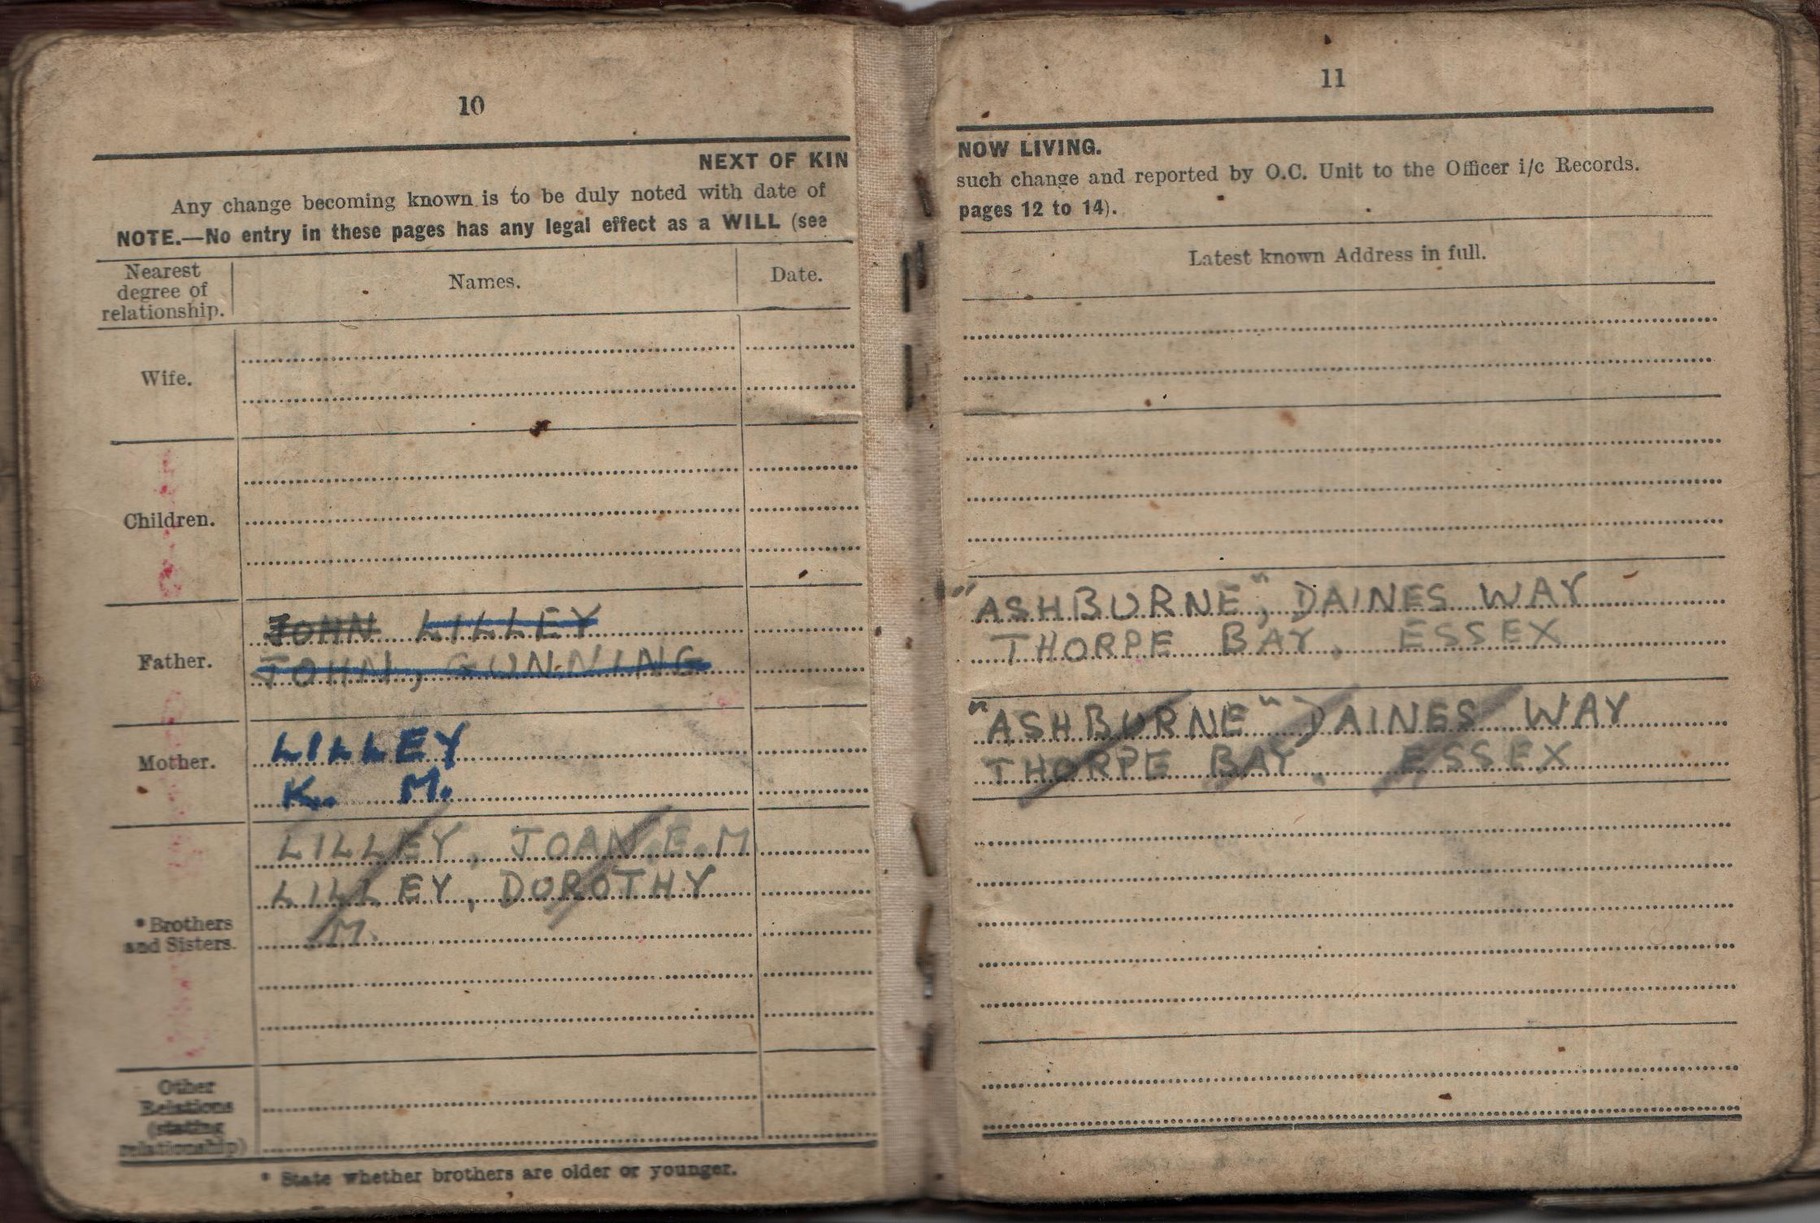 10
NEXT OF KIN
Any change becoming known is to be duly noted with date of
NOTE.—No entry in these pages has any legal effect as a WILL (see
Nearest
degree of
relationship.
Names.
Date.
Wife.
Children.
Father.
JOHN LILLEY
JOHN, GUNNING
Mother.
LILLEY
K. M.
* Brothers
and Sisters.
LILLEY, JOAN.E.M
LILLEY, DOROTHY
M.
Other
Relations
(stating
relationship)
* State whether brothers are older or younger.
11
NOW LIVING.
such change and reported by O.C. Unit to the Officer i/c Records.
pages 12 to 14).
Latest known Address in full.
"ASHBURNE", DAINES WAY
THORPE BAY, ESSEX
"ASHBURNE" DAINES WAY
THORPE BAY, ESSEX